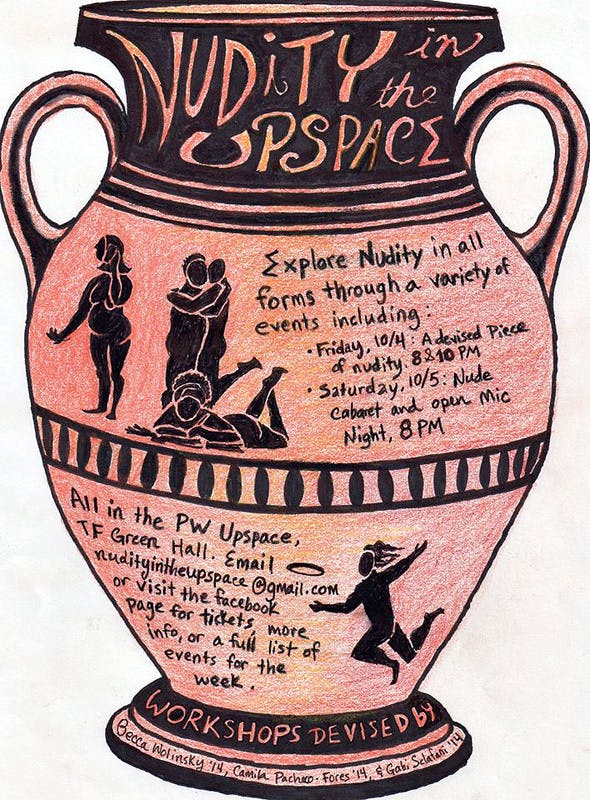 NUDiTY in
the
UPSPACE
Explore Nudity in all
forms through a variety of
events including:
• Friday, 10/4: A devised Piece
of nudity. 8 & 10 PM
• Saturday, 10/5: Nude
Cabaret and open Mic
Night, 8 PM
All in the PW Upspace,
TF Green Hall. Email
nudityintheupspace@gmail.com
or visit the facebook
page for tickets, more
info, or a full list of
events for the
week.
WORKSHOPS DEVISED BY
Becca Wolinsky '14, Camila Pacheco-Fores '14, & Gabi Sclafani '14